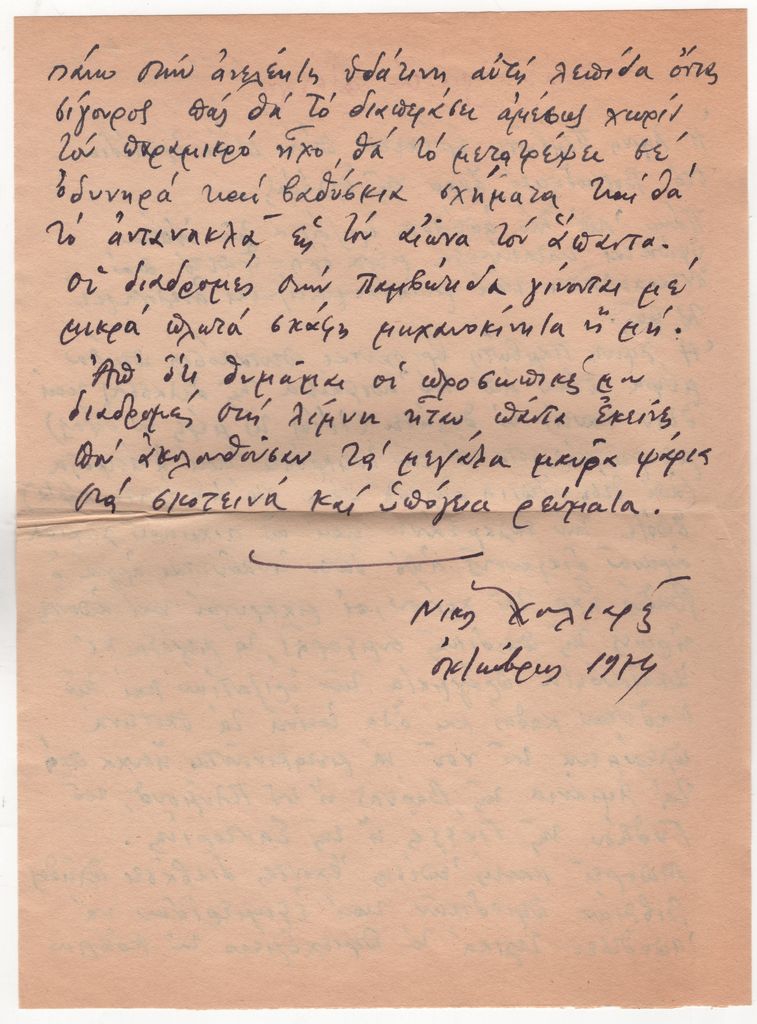 πάνω στήν ἀνελέητη ὑδάτινη αὐτή λεπίδα ὄντας
σίγουρος πώς θά τό διαπεράσει ἀμέσως χωρίς
τόν παραμικρό ἦχο, θά τό μετατρέψει σέ
ὀδυνηρά καί βαθύσκια σχήματα καί θά
τό ἀντανακλᾶ εἰς τόν αἰῶνα τόν ἅπαντα.
Οἱ διαδρομές στήν Παμβώτιδα γίνονται μέ
μικρά πλωτά σκάφη μηχανοκίνητα ἤ μή.
Ἀπ' ὅτι θυμᾶμαι οἱ προσωπικές μου
διαδρομές στή λίμνη ἦταν πάντα ἐκεῖνες
πού ἀκολουθοῦσαν τά μεγάλα μαῦρα ψάρια
στά σκοτεινά καί ὑπόγεια ρεύματα.
Νίκος Χουλιαρᾶς
ὀκτώβρης 1974